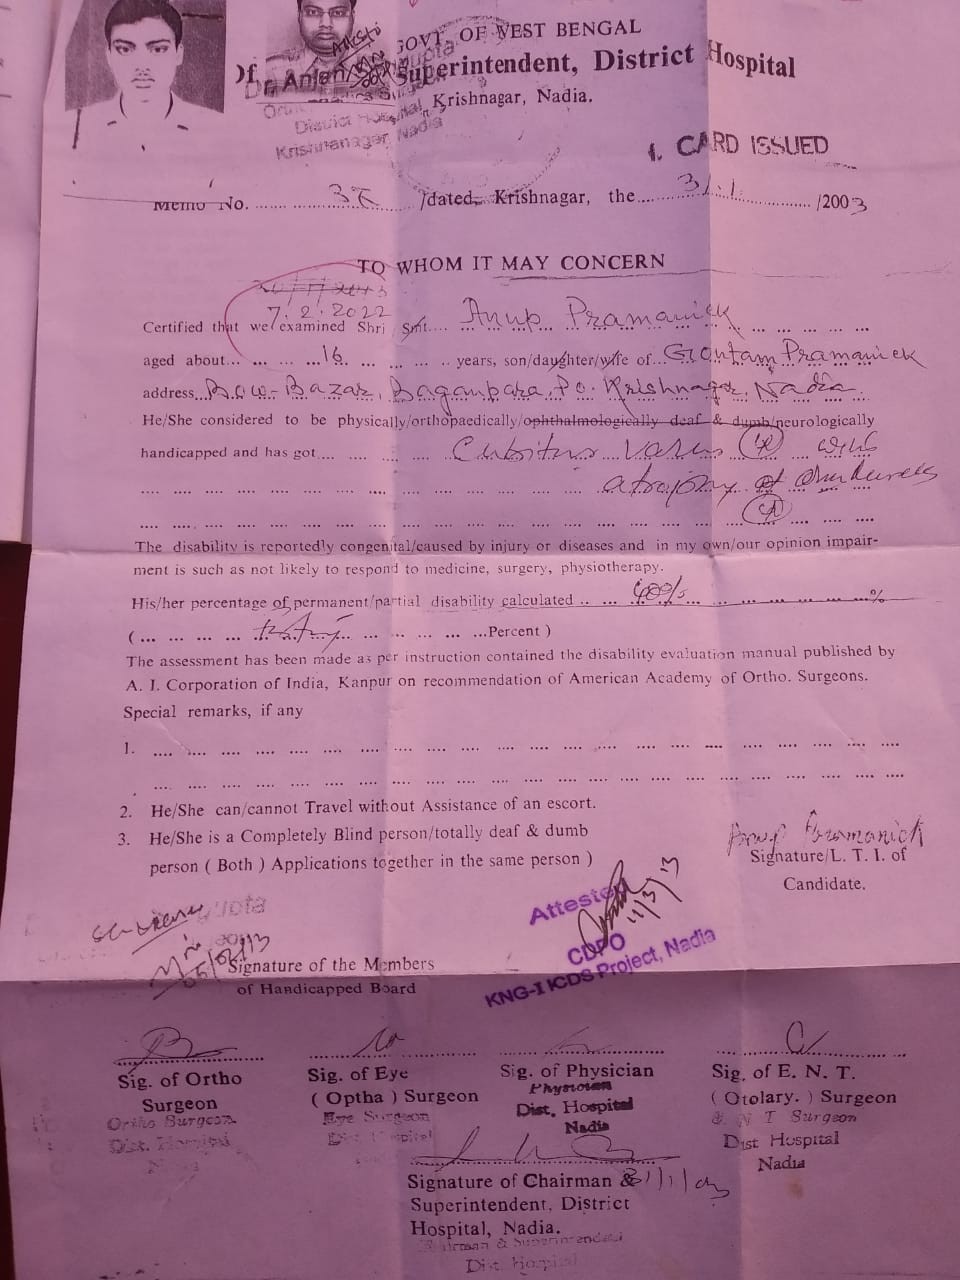 GOVT. OF WEST BENGAL
Of Superintendent, District Hospital
Krishnagar, Nadia.
District Hospital
Krishnanagar, Nadia
1. CARD ISSUED
Memo No. ............ /dated, Krishnagar, the ... 31.1 ............ /2003
TO WHOM IT MAY CONCERN
7.2.2022
Certified that we examined Shri Smt.... Anup Pramanick ... ... ... ...
aged about... ... ... 16 ... ... ... ... .. years, son/daughter/wife of... Goutam Pramanick
address.. Bow-Bazar, Baganpara, Po. Krishnagar, Nadia
He/She considered to be physically/orthopaedically/ophthalmologically deaf & dumb/neurologically
handicapped and has got.... .... .... .... Cubitus varus (R) with
atrophy of
The disability is reportedly congenital/caused by injury or diseases and in my own/our opinion impair-
ment is such as not likely to respond to medicine, surgery, physiotherapy.
His/her percentage of permanent/partial disability calculated .. ... 40% ... ... ... ... ... %
( ... ... ... ... ... ... ... ... ... ...Percent )
The assessment has been made as per instruction contained the disability evaluation manual published by
A. I. Corporation of India, Kanpur on recommendation of American Academy of Ortho. Surgeons.
Special remarks, if any
1. .... .... .... .... .... .... .... .... .... .... .... .... .... .... .... ....
2. He/She can/cannot Travel without Assistance of an escort.
3. He/She is a Completely Blind person/totally deaf & dumb
person ( Both ) Applications together in the same person )
Anup Pramanick
Signature/L. T. I. of
Candidate.
Attested
11/3/13
CDPO
KNG-I ICDS Project, Nadia
Signature of the Members
of Handicapped Board
Sig. of Ortho
Surgeon
Ortho Surgeon
Dist. Hospital
Sig. of Eye
( Optha ) Surgeon
Eye Surgeon
Dist Hospital
Sig. of Physician
Physician
Dist. Hospital
Nadia
Sig. of E. N. T.
( Otolary. ) Surgeon
E N T Surgeon
Dist Hospital
Nadia
Signature of Chairman &
Superintendent, District
Hospital, Nadia.
Chairman & Superintendent
Dist. Hospital